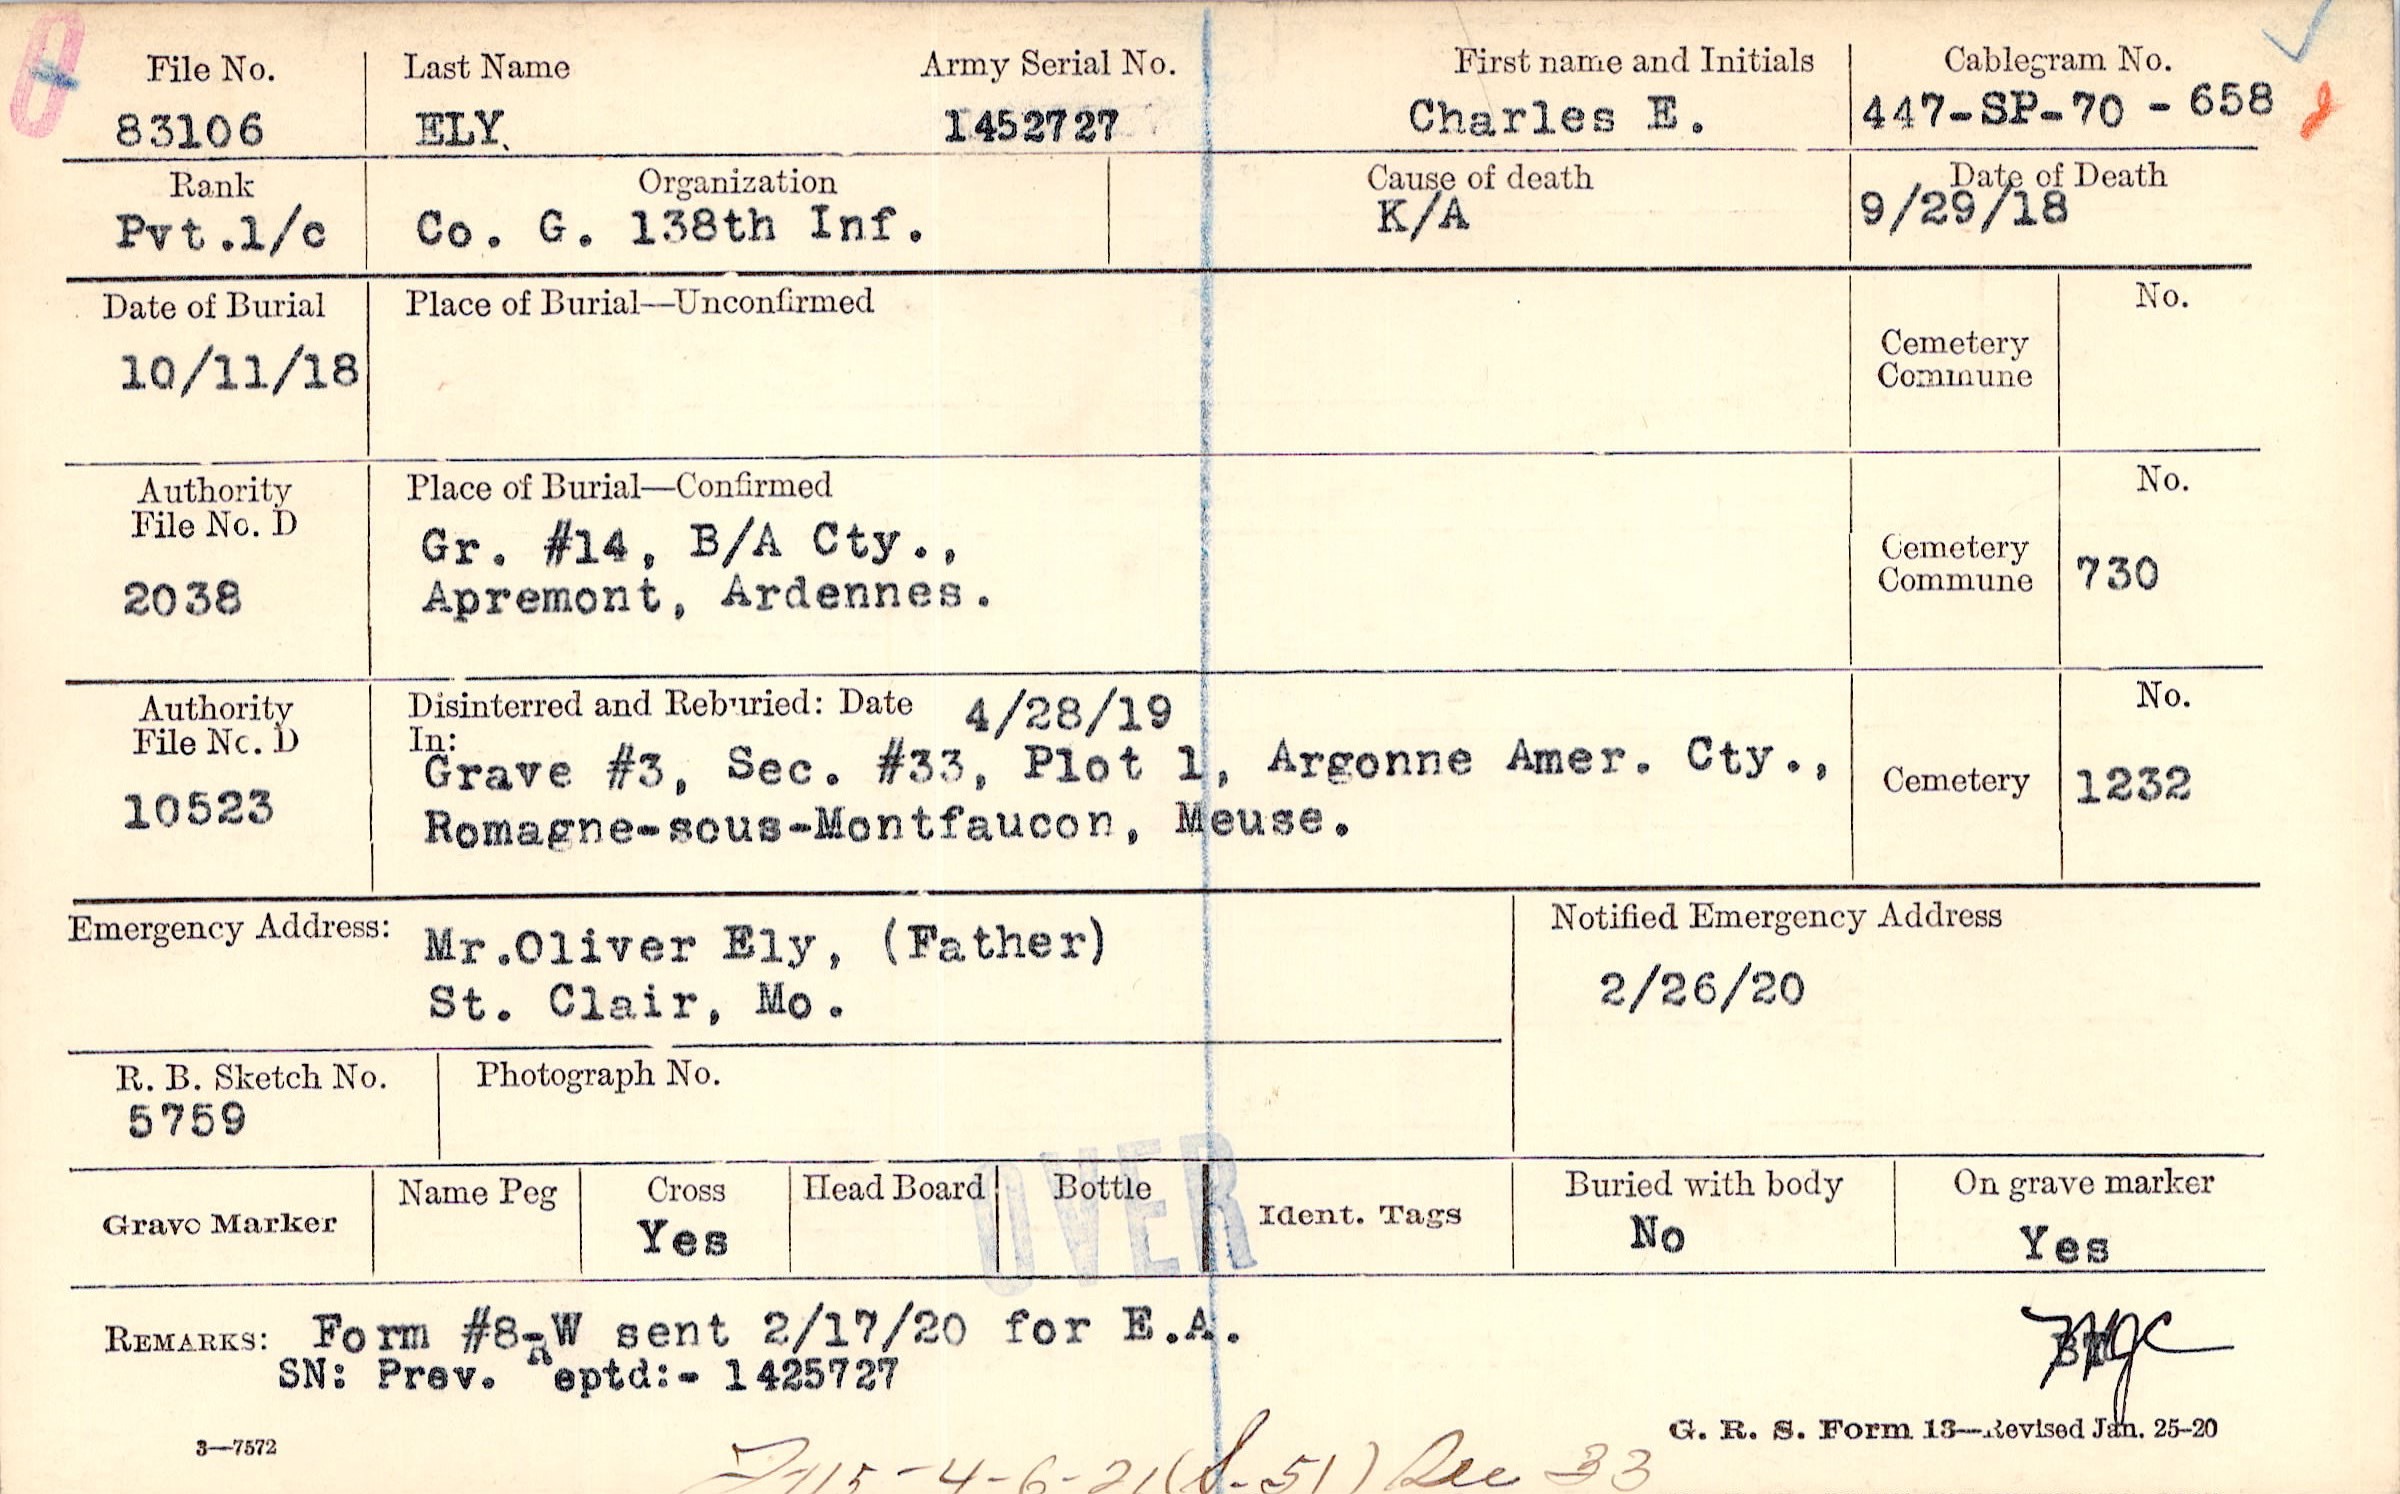 File No. Last Name Army Serial No. First name and Initials Cablegram No.
83106 ELY 1452727 Charles E. 447-SP-70 - 658
Rank Organization Cause of death Date of Death
Pvt.1/c Co. G. 138th Inf. K/A 9/29/18
Date of Burial Place of Burial—Unconfirmed No.
10/11/18 Cemetery
Commune
Authority Place of Burial—Confirmed No.
File No. D
Gr. #14, B/A Cty., Cemetery
2038 Apremont, Ardennes. Commune 730
Authority Disinterred and Reburied: Date 4/28/19 No.
File No. D In:
Grave #3, Sec. #33, Plot 1, Argonne Amer. Cty., Cemetery 1232
10523 Romagne-sous-Montfaucon, Meuse.
Emergency Address: Mr.Oliver Ely, (Father) Notified Emergency Address
St. Clair, Mo. 2/26/20
R. B. Sketch No. Photograph No.
5759
OVER
Grave Marker Name Peg Cross Head Board Bottle Ident. Tags Buried with body On grave marker
Yes No Yes
REMARKS: Form #8-W sent 2/17/20 for E.A.
SN: Prev. Reptd:- 1425727
3—7572 G. R. S. Form 13—Revised Jan. 25-20
4-6-21 (S-51) Dec 33